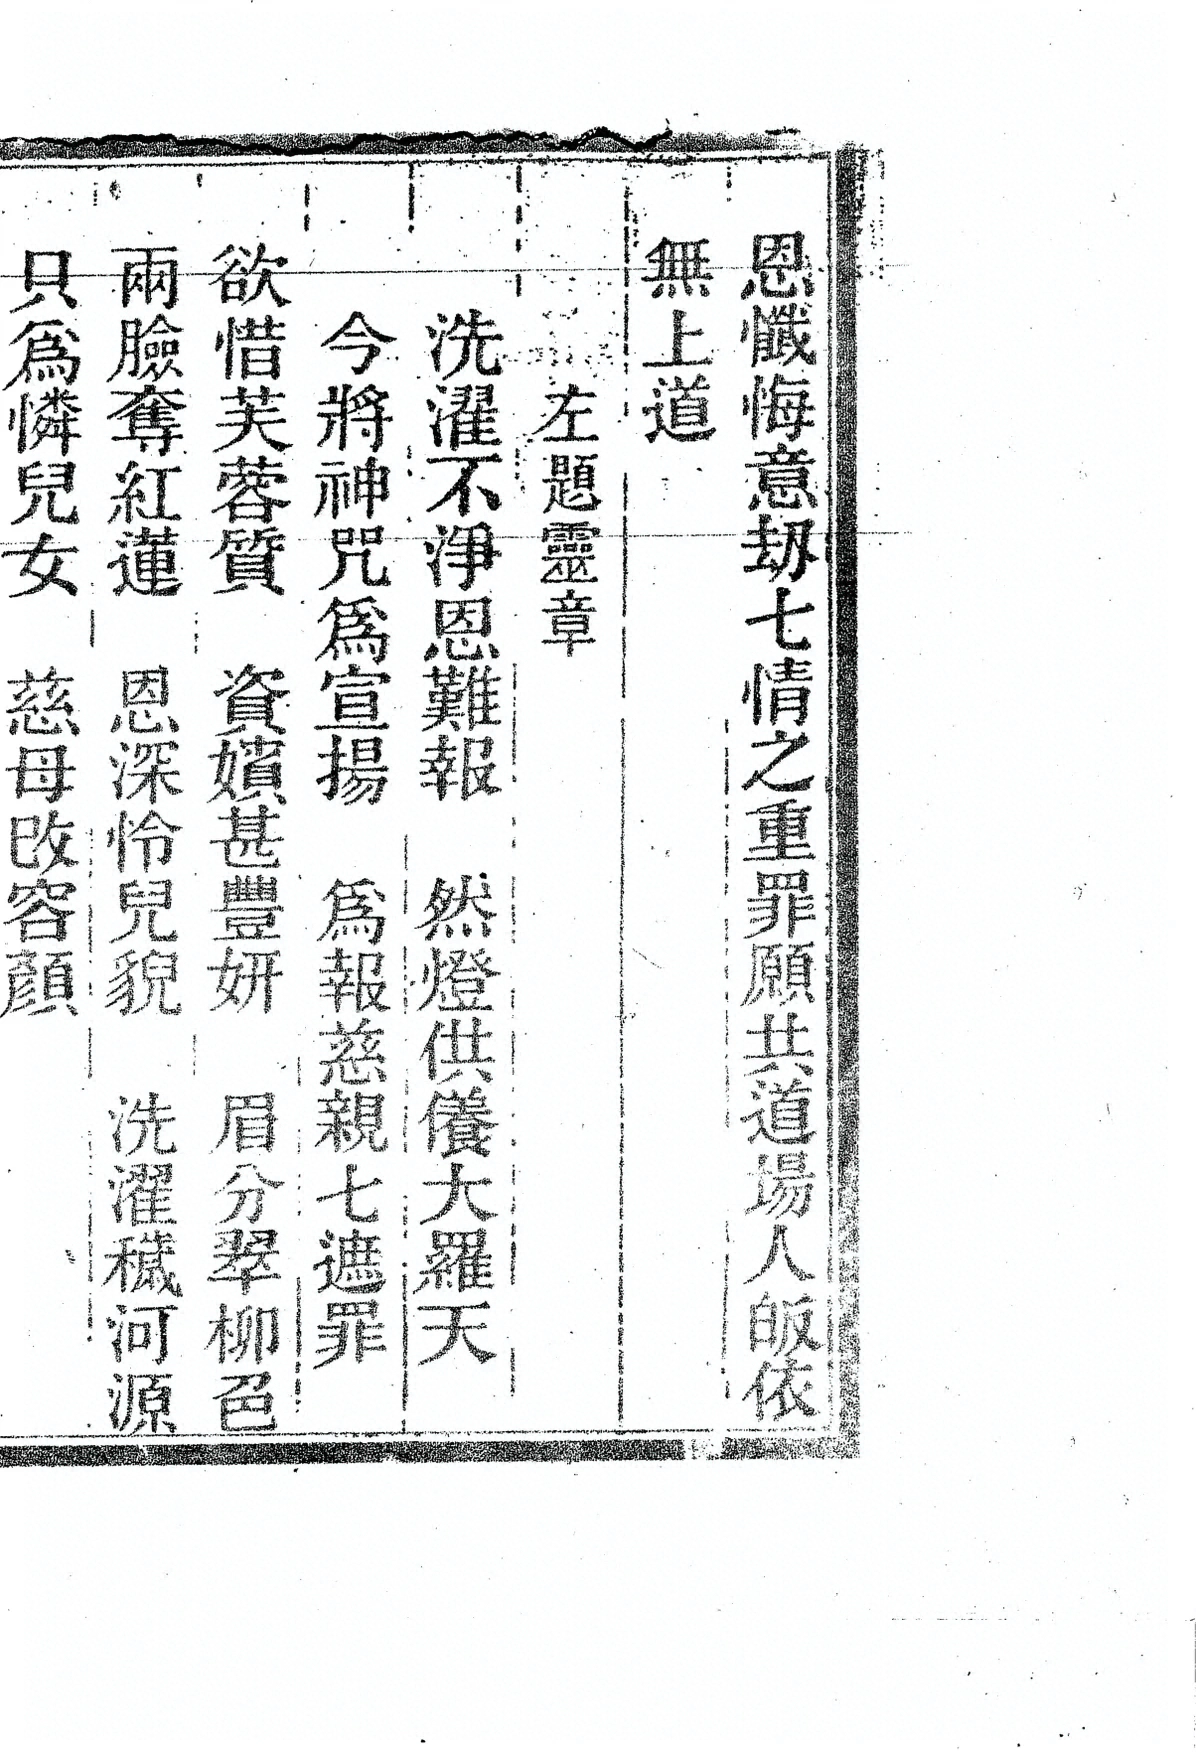 恩懺悔意刼七情之重罪願共道場人皈依
無上道
左題靈章
洗濯不淨恩難報　然燈供養大羅天
今將神咒爲宣揚　爲報慈親七遮罪
欲惜芙蓉質　資嬪甚豐妍　眉分翠柳色
兩臉奪紅蓮　恩深怜兒貌　洗濯穢河源
只爲憐兒女　慈母改容顏